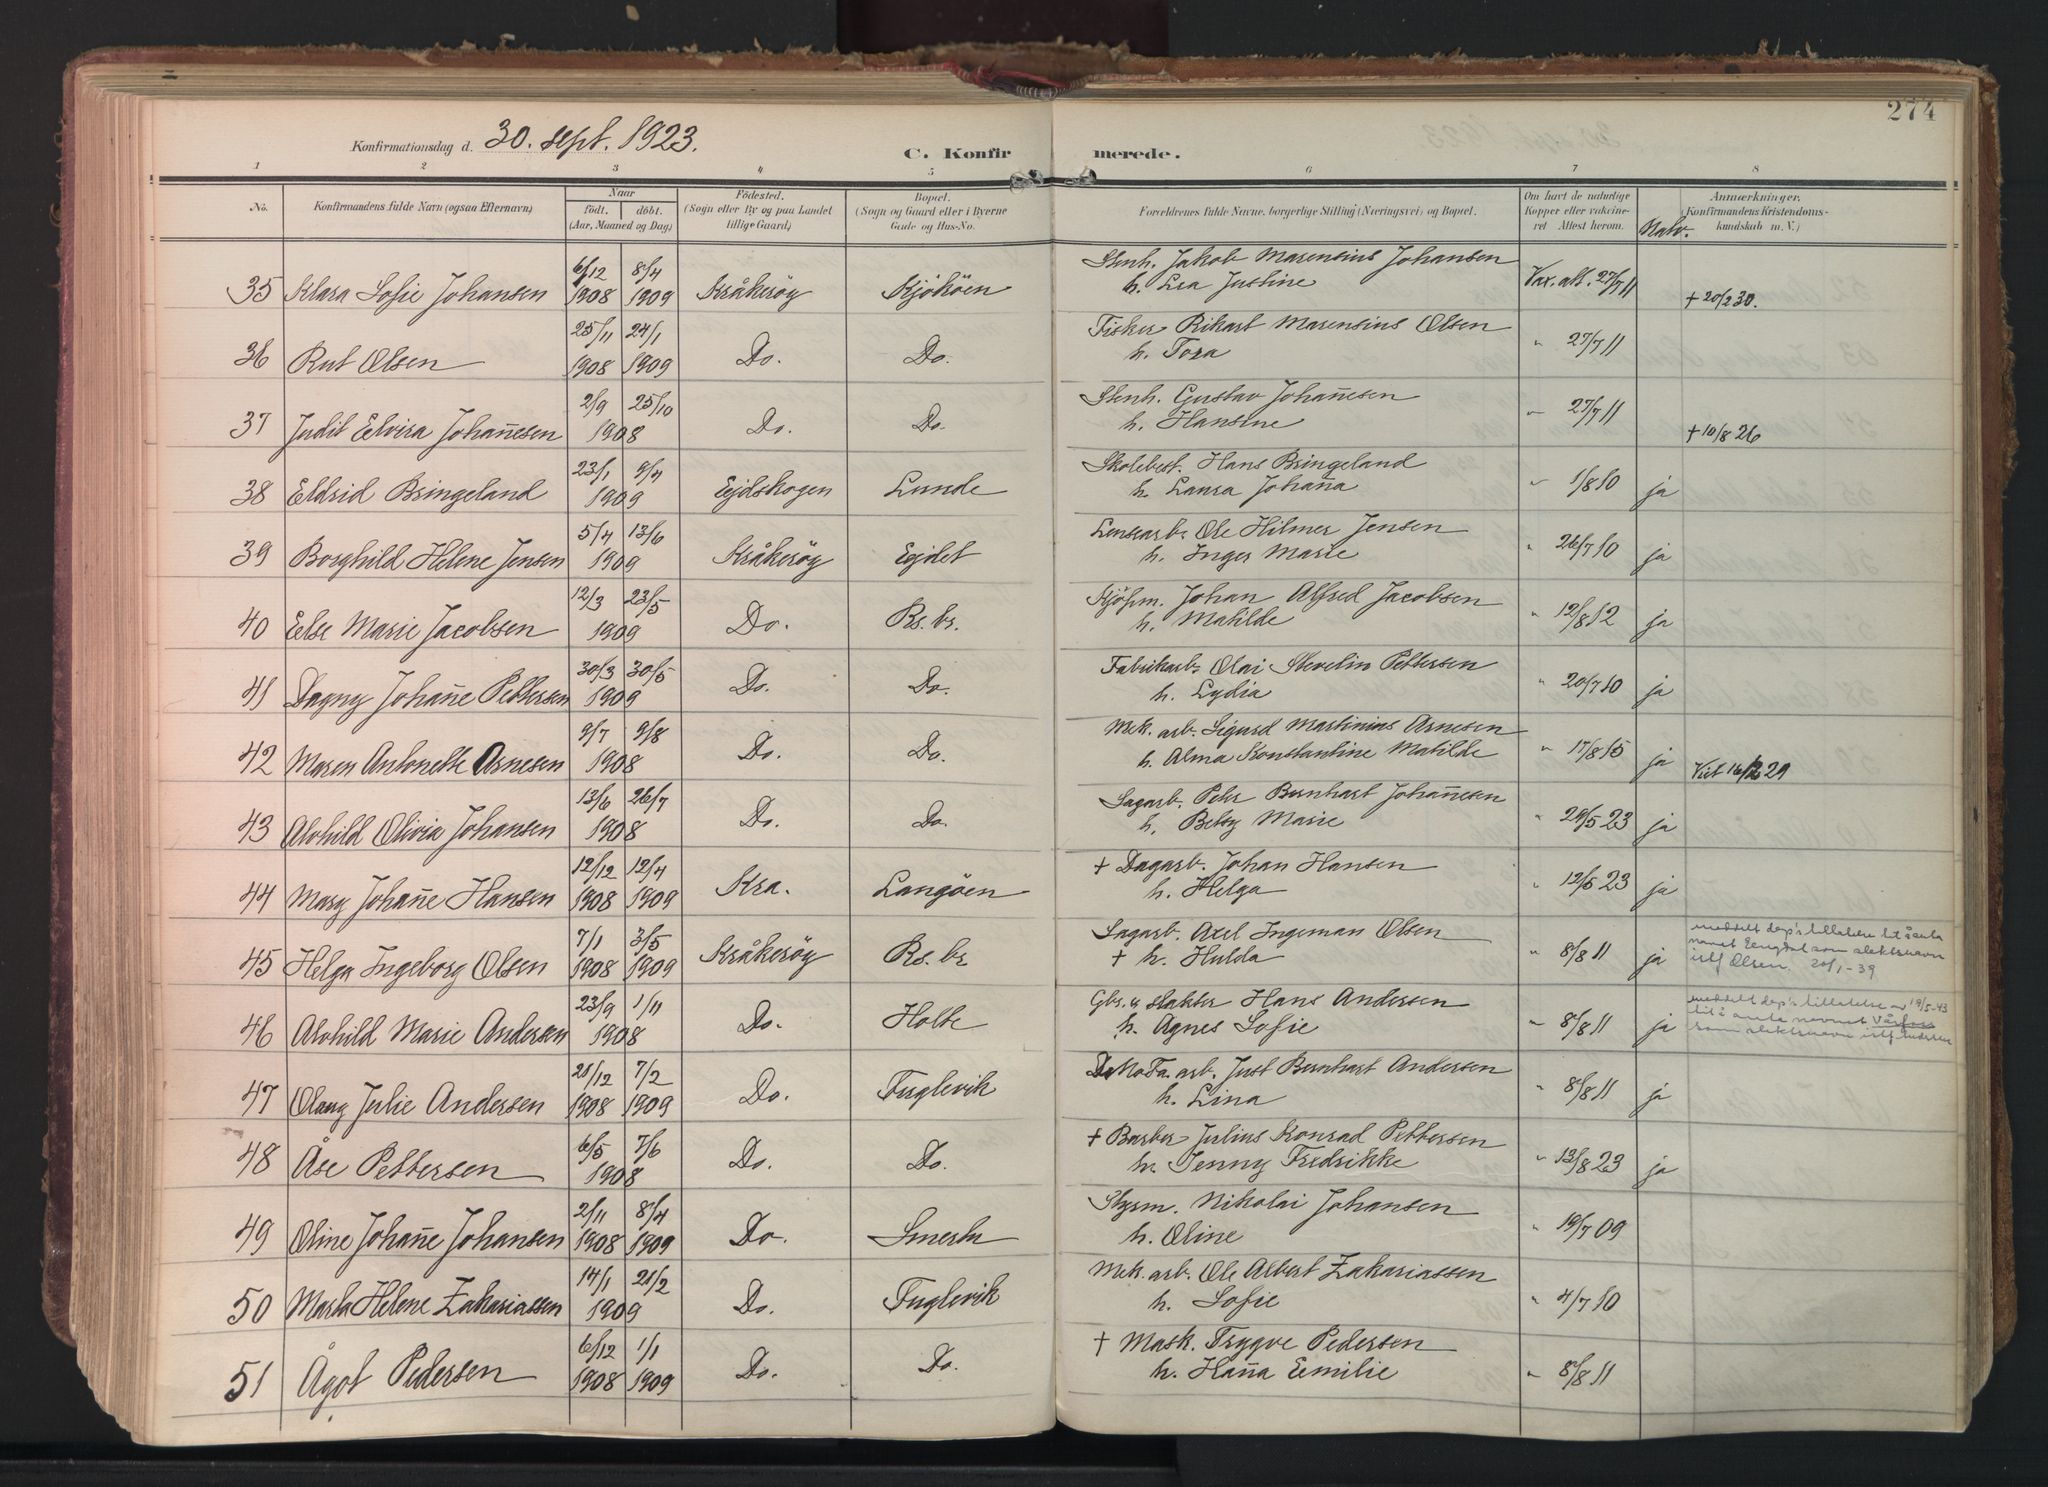 274
Konfirmationsdag d. 30. sept. 1923.
C. Konfirmerede.
1 2 3 4 5 6 7 8
No. Konfirmandens fulde Navn (ogsaa Efternavn) Naar födt. döbt. (Aar, Maaned og Dag) Födested. (Sogn eller By og paa Landet tillige Gaard) Bopæl. (Sogn og Gaard eller i Byerne Gade og Hus-No. Forældrenes fulde Navne, borgerlige Stilling (Næringsvei) og Bopæl. Om havt de naturlige Kopper eller vakcineret Attest herom. Natv. Anmærkninger. Konfirmandens Kristendomskundskab m. V.)
35 Klara Sofie Johansen 6/12 1908 8/4 1909 Kråkeröy Kjököen Stenh. Jakob Marensius Johansen
h. Lea Justine Vax. att. 27/7 11 + 20/2 30.
36 Rut Olsen 25/11 1908 24/1 1909 Do. Do. Fisker Rikart Marensius Olsen
h. Tora " 27/7 11
37 Judit Elvira Johan̄esen 2/9 25/10 1908 Do. Do. Stenh. Gustav Johan̄esen
h. Hansine " 27/7 11 + 10/8 26
38 Eldrid Bringeland 23/1 9/4 1909 Ejdskogen Lunde Skolebest. Hans Bringeland
h. Laura Johan̄a " 1/8 10 ja
39 Borghild Helene Jensen 5/4 13/6 1909 Kråkeröy Ejdet Lensearb. Ole Hilmer Jensen
h. Inger Marie " 26/7 10 ja
40 Else Marie Jacobsen 12/3 23/5 1909 Do. Rs. br. Kjöpm. Johan Alfred Jacobsen
h. Matilde " 12/8 12 ja
41 Dagny Johan̄e Pettersen 30/3 30/5 1909 Do. Do. Fabrikarb. Olai Stevelin Pettersen
h. Lydia " 20/7 10 ja
42 Maren Antonette Arnesen 9/7 9/8 1908 Do. Do. Mek. arb. Sigurd Martinius Arnesen
h. Alma Konstantine Matilde " 17/8 15 ja Viet 16/2 29
43 Alvhild Olivia Johansen 13/6 26/7 1908 Do. Do. Sagarb. Peter Bernhart Johan̄esen
h. Betsy Marie " 29/5 23 ja
44 Mary Johan̄e Hansen 12/12 1908 12/4 1909 Kra. Langöen + Dagarb. Johan Hansen
h. Helga " 12/5 23 ja
45 Helga Ingeborg Olsen 7/1 1908 3/5 1909 Kråkeröy Rs. br Sagarb. Axel Ingeman Olsen
+ h. Hulda " 8/8 11 ja meddelt dep's tillatelse til å anta
navnet Engdal som slektsnavn
istf Olsen. 20/1-39
46 Alvhild Marie Andersen 23/9 1/11 1908 Do. Holte Gbr. & slakter Hans Andersen
h. Agnes Sofie " 8/8 11 ja meddelt dep's tillatelse 19/5-43
til å anta navnet
som slektsnavn istf Andersen
47 Olaug Julie Andersen 21/12 1908 7/2 1909 Do. Fuglevik DeNoFa. arb. Just Bernhart Andersen
h. Lina " 8/8 11 ja
48 Åse Pettersen 6/5 7/6 1908 Do. Do. + Barber Julius Konrad Pettersen
h. Jenny Fredrikke " 13/8 23 ja
49 Oline Johan̄e Johansen 2/11 1908 8/4 1909 Do. Smertu Stysm. Nikolai Johansen
h. Oline " 19/7 09
50 Marta Helene Zakariassen 14/1 21/2 1909 Do. Fuglevik Mek. arb. Ole Albert Zakariassen
h. Sofie " 4/7 10
51 Ågot Pedersen 6/12 1908 1/1 1909 Do. Do. + Mask. Trygve Pedersen
h. Han̄a Emilie " 8/8 11